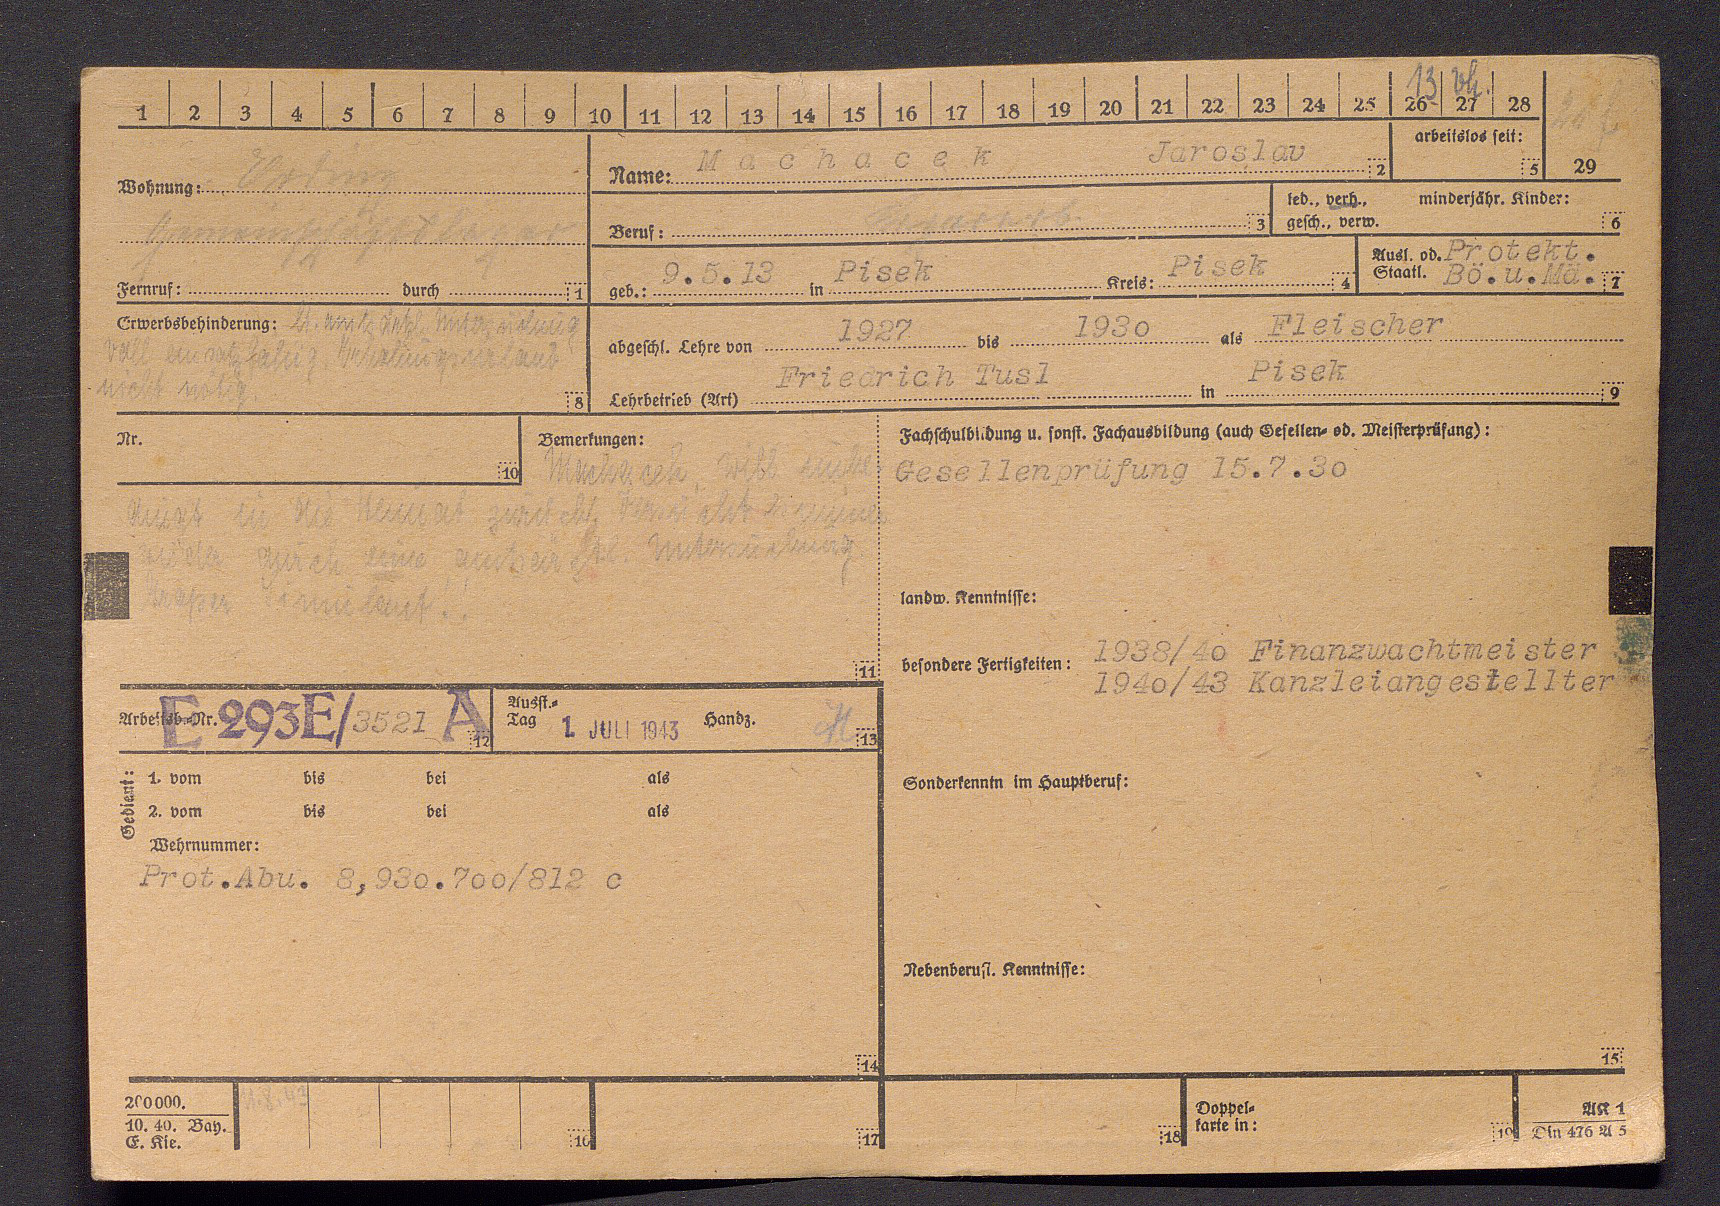 13 vh.
1 2 3 4 5 6 7 8 9 10 11 12 13 14 15 16 17 18 19 20 21 22 23 24 25 26 27 28
29
Wohnung: Erding
Name: Machacek Jaroslav 2
arbeitslos seit: 5
Gemeinschaftslager
Beruf: 3
led., verh., gesch., verw.
minderjähr. Kinder: 6
Fernruf: durch 1
geb.: 9.5.13 in Pisek Kreis: Pisek 4
Ausl. od. Protekt.
Staatl. Bö.u.Mä. 7
Erwerbsbehinderung: Lt. amtsärztl. Untersuchung
voll einsatzfähig.
nicht nötig. 8
abgeschl. Lehre von 1927 bis 1930 als Fleischer
Lehrbetrieb (Art) Friedrich Tusl in Pisek 9
Nr. 10
Bemerkungen:
Machacek will unbe-
dingt in die Heimat zurück,
wurde durch eine amtsärztl. Untersuchung
Simulant!
11
Fachschulbildung u. sonst. Fachausbildung (auch Gesellen- od. Meisterprüfung):
Gesellenprüfung 15.7.30
landw. Kenntnisse:
besondere Fertigkeiten: 1938/40 Finanzwachtmeister
1940/43 Kanzleiangestellter
Arbeitsb.-Nr. E 293E/3521 A 12
Ausst.-Tag 1. JULI 1943 Handz. 13
Sonderkenntn im Hauptberuf:
Gedient:
1. vom bis bei als
2. vom bis bei als
Wehrnummer:
Prot.Abu. 8,930.700/812 c
14
Nebenberufl. Kenntnisse:
15
200000.
10. 40. Bay.
E. Kie.
16
17
18
Doppel-
karte in: 19
AK 1
Din 476 A 5